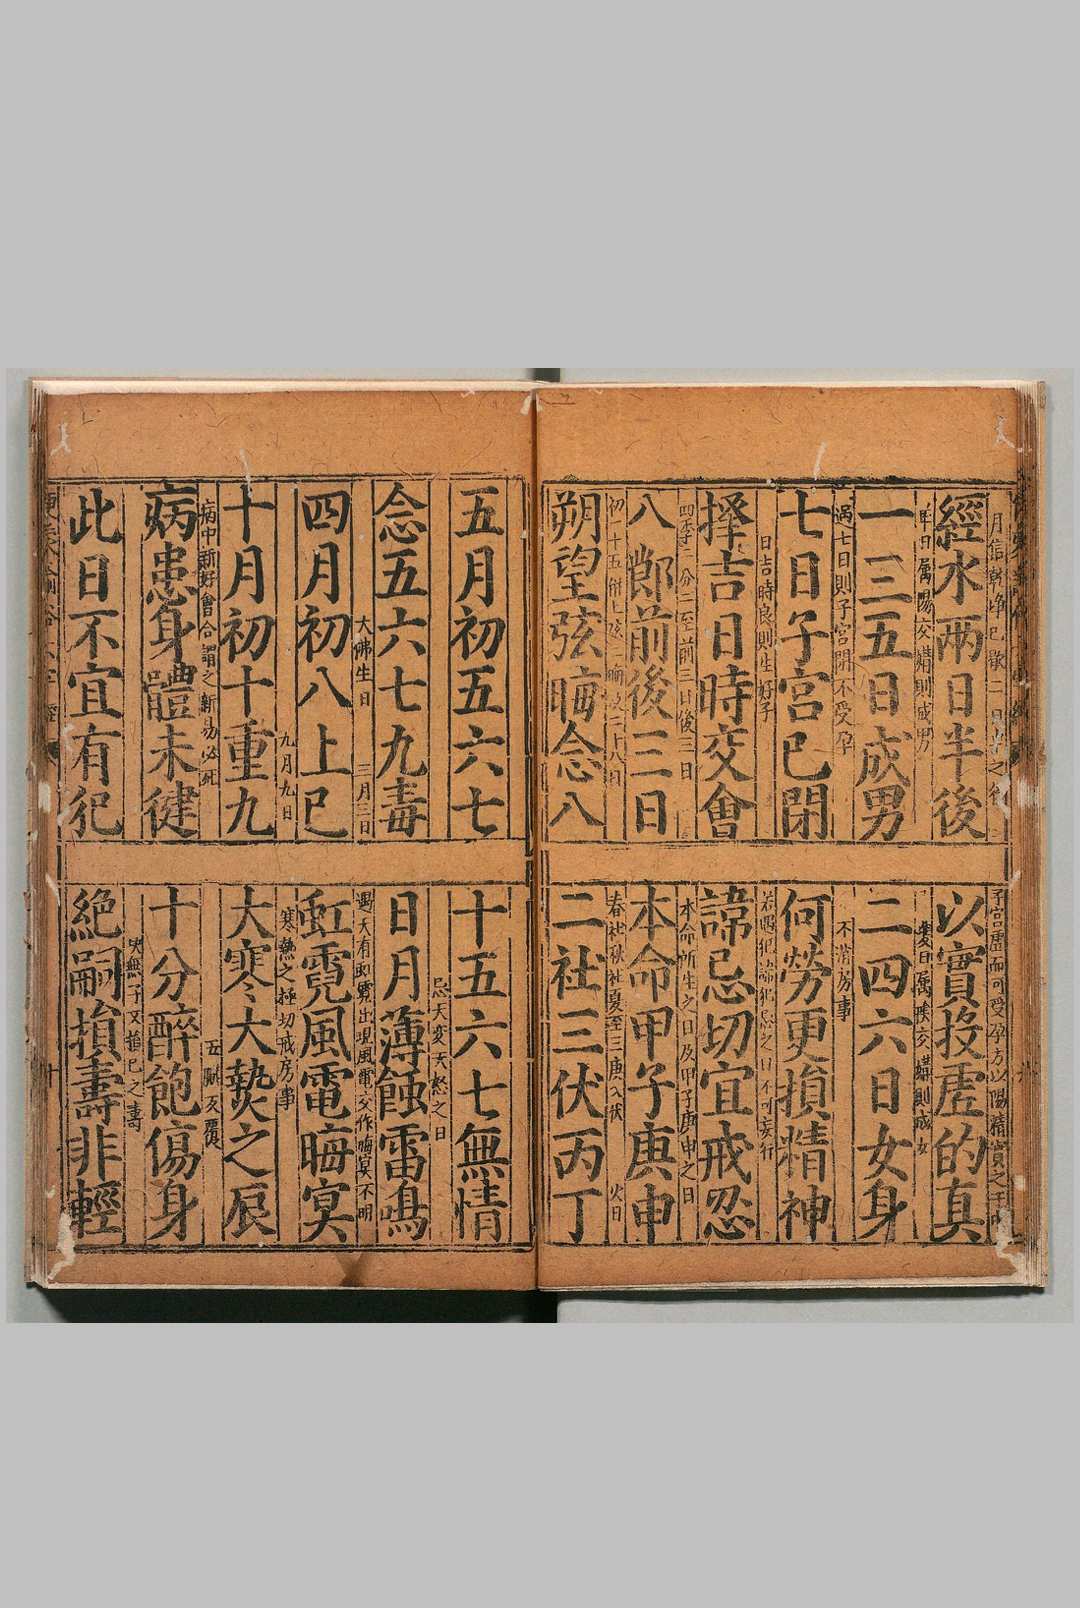 月信乾净已歇二日半之後
經水兩日半後
單日屬陽交媾則成男
一三五日成男
過七日則子宮閉不受孕
七日子宮已閉
日吉時良則生好子
擇吉日時交會
四季二分二至前三日後三日
八節前後三日
初一十五併上弦下弦
朔望弦晦念八
子宮虛而可受孕方以陽精實之
以實投虛的真
雙日屬陰交媾則成女
二四六日女身
不消房事
何勞更損精神
若遇犯諱犯忌之日不可妄行
諱忌切宜戒忍
本命所生之日及甲子庚申之日
本命甲子庚申
春社秋社夏至三庚入伏 火日
二社三伏丙丁
五月初五六七
念五六七九毒
大佛生日 三月三日
四月初八上巳
九月九日
十月初十重九
病中新好會合謂之新易必死
病患身體未健
此日不宜有犯
十五六七無情
忌天変天怒之日
日月薄蝕雷鳴
遇天有虹霓出現風電交作晦冥不明
虹霓風電晦冥
寒熱之極切戒房事
大寒大熱之辰
五臟反覆
十分醉飽傷身
史無子又損己之壽
絕嗣損壽非輕